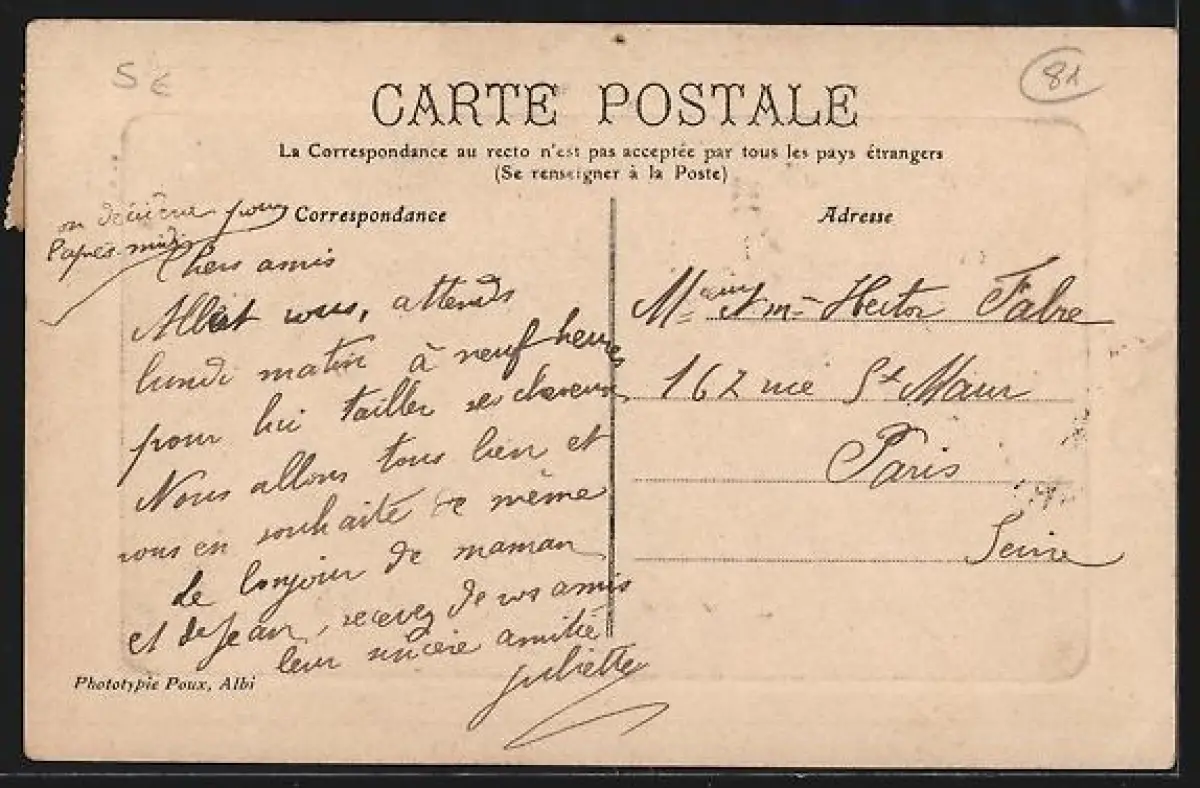 5 €
81
CARTE POSTALE
La Correspondance au recto n'est pas acceptée par tous les pays étrangers
(Se renseigner à la Poste)
Correspondance
pour
l'après-midi
Chers amis
Albert vous, attends
lundi matin à neuf heures
pour lui tailler ses cheveux
Nous allons tous bien et
vous en souhaite de même
le bonjour de maman
et de Jean, recevez de vos amis
leur sincère amitié
Juliette
Phototypie Poux, Albi
Adresse
Hector Fabre
162 rue St Maur
Paris
Seine